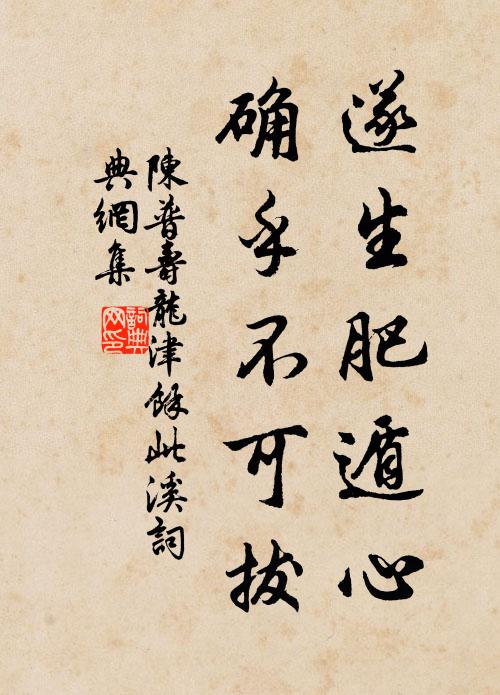 遂生肥遁心
确乎不可拔
陳普壽龍津餘此溪詞
典網集
詞典
网印